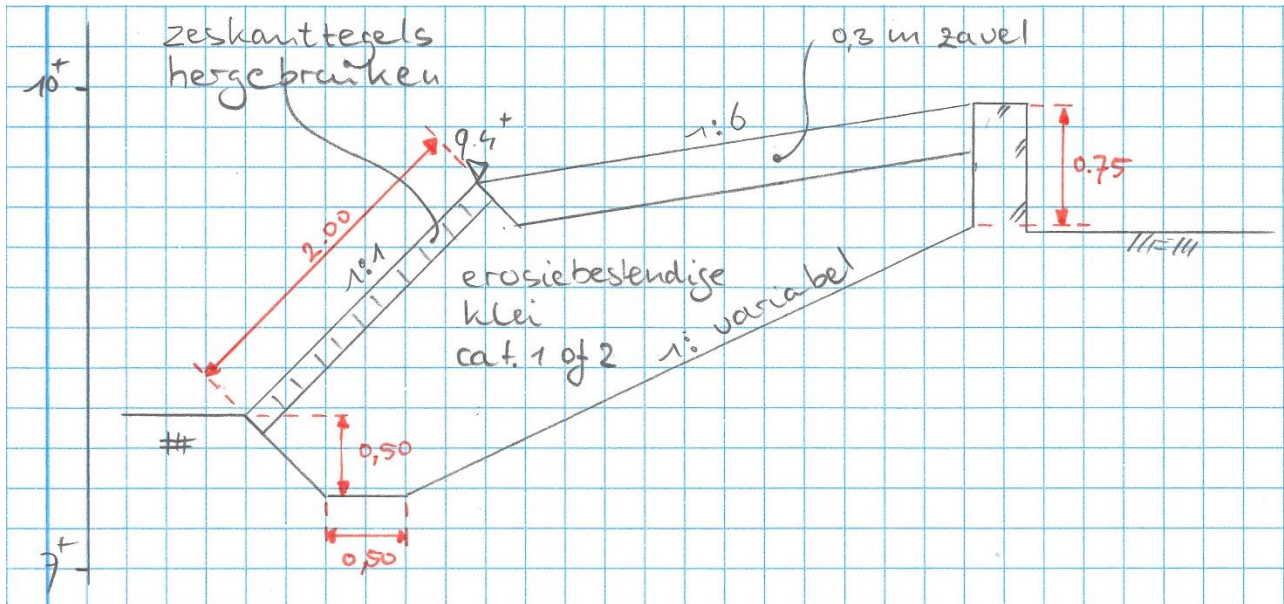 zeskanttegels
hergebruiken
0,3 m zavel
10+
9.4+
1:6
0.75
2.00
1:1
erosiebestendige
klei
cat. 1 of 2
1: variabel
0,50
0,50
7+